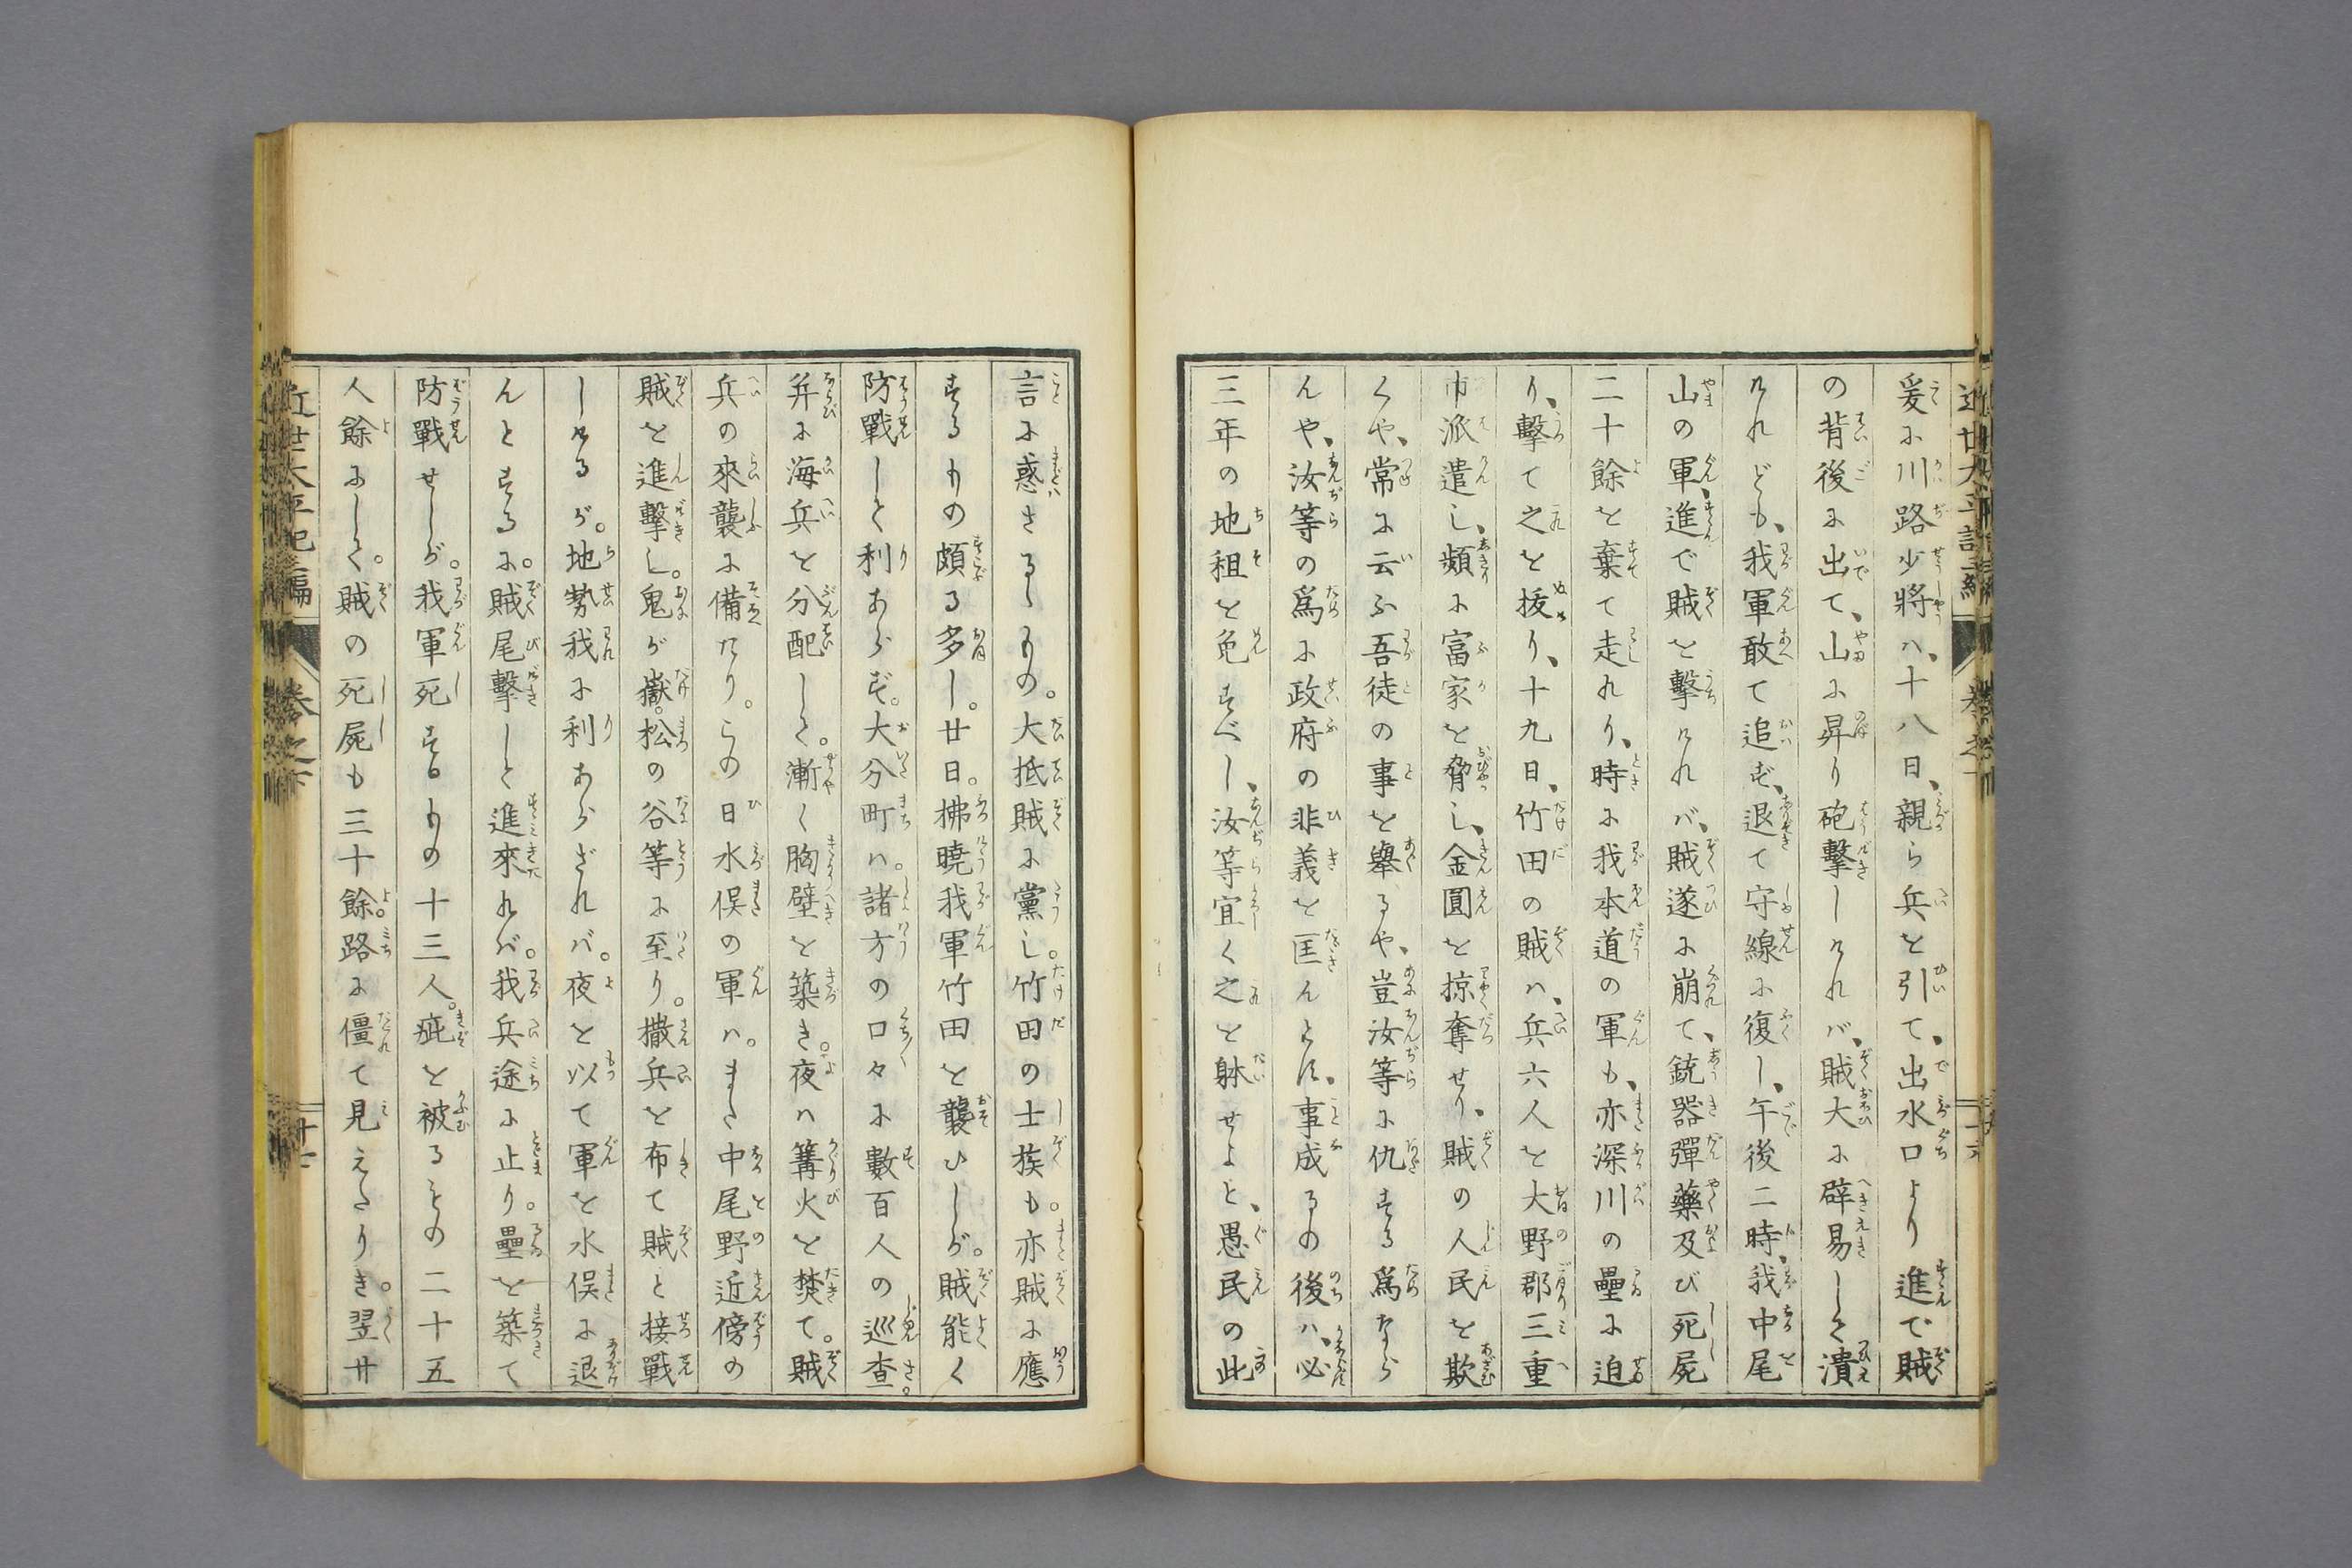 爰に川路少將ハ、十八日、親ら兵を引て、出水口より進で賊
の背後に出て、山に昇り砲撃しけれバ、賊大に辟易して潰
けれども、我軍敢て追ず、退て守線に復し、午後二時、我中尾
山の軍、進で賊を撃けれバ、賊遂に崩て、銃器彈藥及び死屍
二十餘を棄て走れり、時に我本道の軍も、亦深川の壘に迫
り、擊て之を拔り、十九日、竹田の賊ハ、兵六人を大野郡三重
市派遣し、頻に富家を脅し、金圓を掠奪せり、賊の人民を欺
くや、常に云ふ吾徒の事を擧るや、豈汝等に仇する爲なら
んや、汝等の爲に政府の非義を匡んとす、事成るの後ハ、必
三年の地租を免すべし、汝等宜く之を躰せよと、愚民の此
言に惑さるゝもの。大抵賊に黨し。竹田の士族も。亦賊に應
するもの頗る多し。廿日。拂曉我軍竹田を襲ひしが。賊能く
防戰して利あらず。大分町ハ。諸方の口々に數百人の巡査。
并に海兵を分配して。漸く胸壁を築き。夜ハ篝火を焚て。賊
兵の來襲に備たり。この日水俣の軍ハ。また中尾野近傍の
賊を進擊し。鬼が嶽。松の谷等に至り。撒兵を布て賊と接戰
しけるが。地勢我に利あらざれバ。夜を以て軍を水俣に退
んとする。に賊尾擊して進來れバ。我兵途に止り。壘を築て
防戰せしが。我軍死するもの十三人。疵を被るもの二十五
人餘にして。賊の死屍も三十餘。路に僵て見えたりき。翌廿
近世太平記三編 卷之下